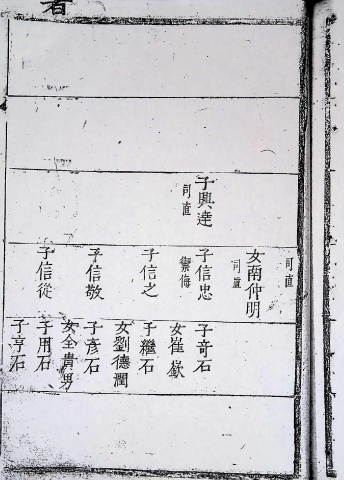 子興達
司直
司直
女南仲明
司直
子信忠
禦侮
子信之
子信敬
子信從
子奇石
女崔嶔
子繼石
女劉德潤
子彥石
女全貴男
子用石
子亨石